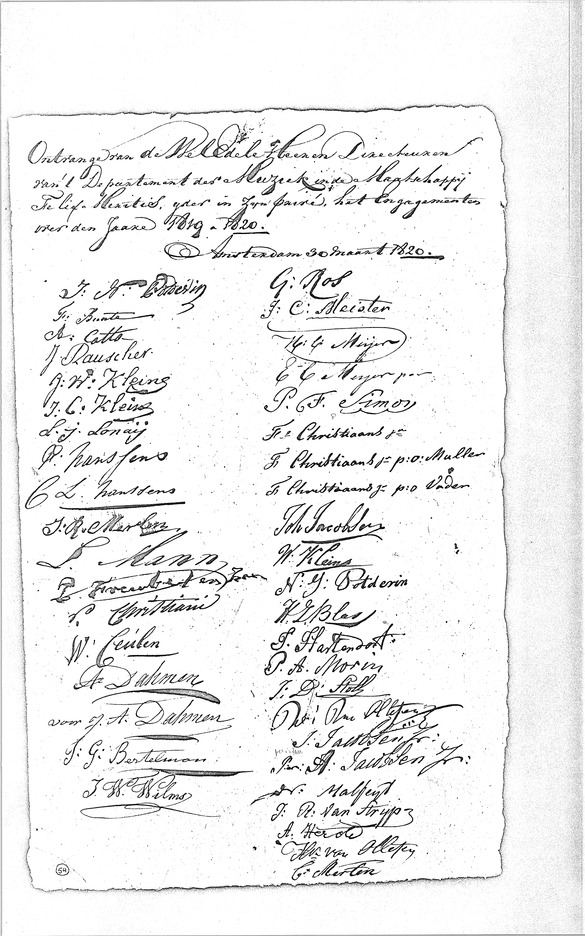 Ontvange van de Wel Edele Heeren Directeuren
van't Departement der Muzeck in de Maatschappij
Felix Meritis, yder in Zyn partie, het Engagementen
over den Jaare 1819 - 1820.
Amsterdam 30 Maart 1820.
J. N. Potdevin
F: Bunte
A: Catto
J Rauscher
J: W: Kleine
J. C: Kleine
L. J. Lonaij
P: hanssens
C L. hanssens
J. R. Merlen
L. Mann
P. Christiani
W: Ceulen
A: Dahmen
voor J. A. Dahmen
J: G: Bertelman
J. W. Wilms
G: Ros
J: C: Meister
H: C Meijer
C C Meijer por
P. F. Simon
Fr Christiaans jr
F Christiaans jr p:o: Muller
F Christiaans jr p:o Vader
Joh Jacobson
W. Kleine
N: J: Potdevin
H. J Blas
J. Hartendorf
P. A. Morin
J: D: Stolz
J. Janssen jr:
Per A: Janssen Jr:
Dr. Halfeyt
J. R: van Strijp
A. Herold
HK van Ollefen
C: Merten
54